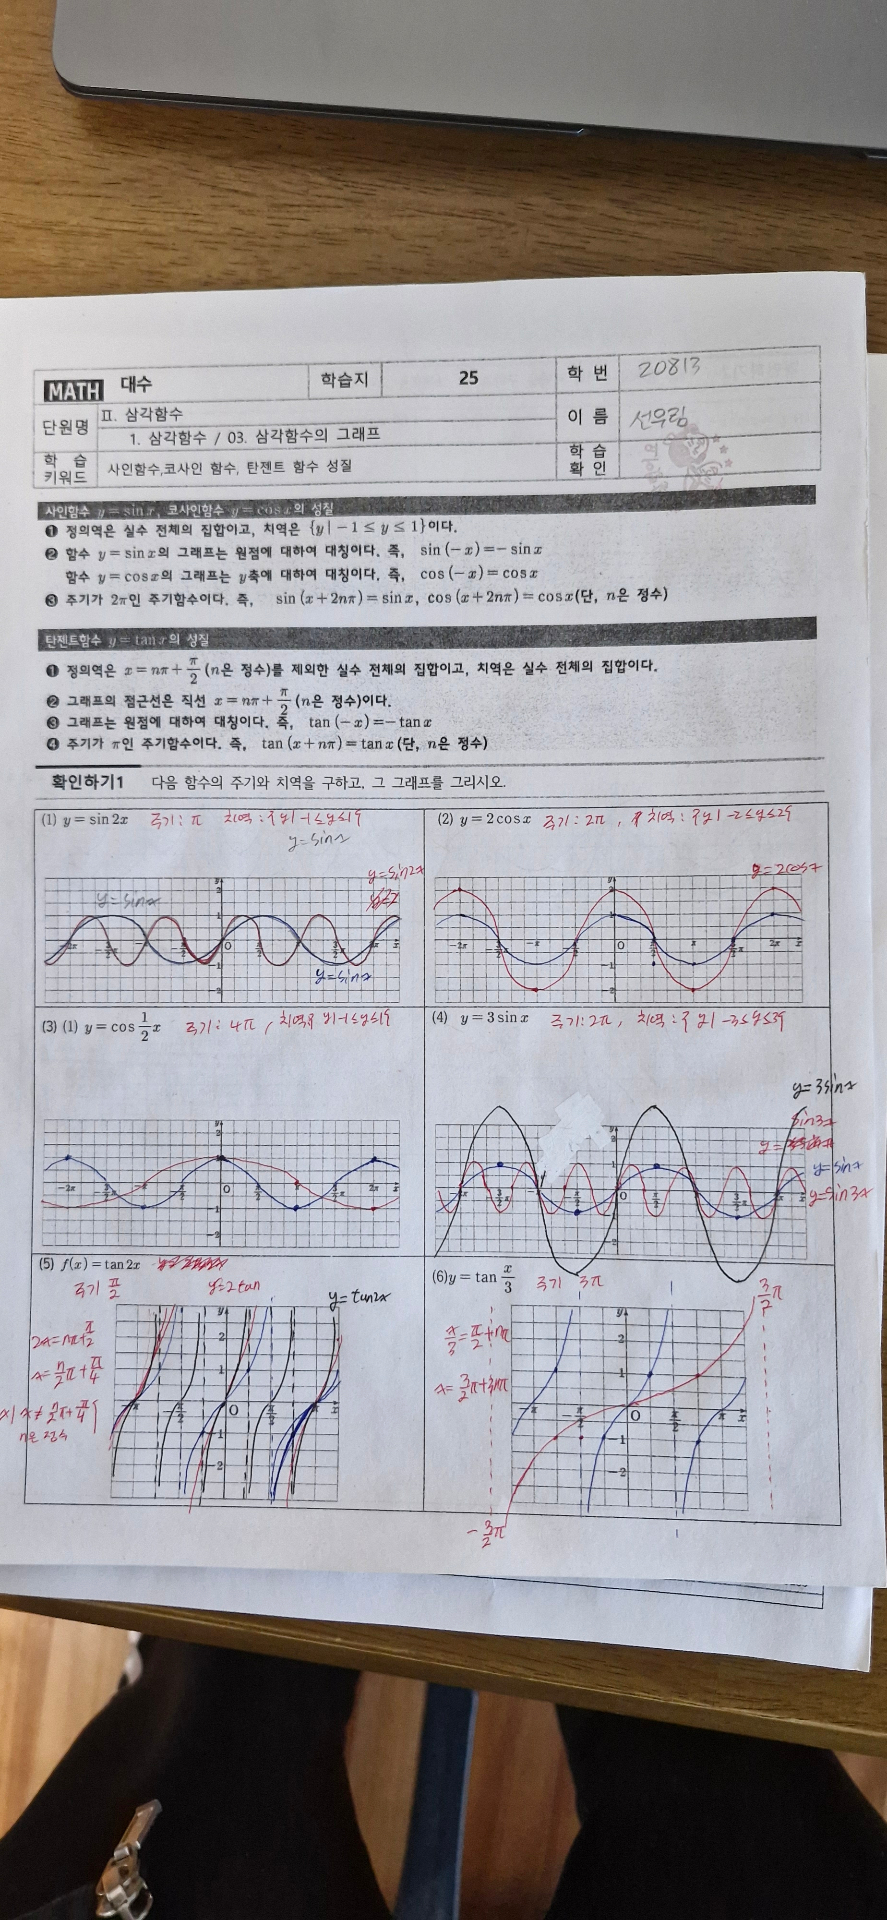 MATH 대수 학습지 25 학 번 20813
단원명 Ⅱ. 삼각함수 이 름 선우림
1. 삼각함수 / 03. 삼각함수의 그래프
학 습 키워드 사인함수,코사인 함수, 탄젠트 함수 성질 학 습 확 인
사인함수 y = sin x, 코사인함수 y = cos x의 성질
❶ 정의역은 실수 전체의 집합이고, 치역은 {y | −1 ≤ y ≤ 1}이다.
❷ 함수 y = sin x의 그래프는 원점에 대하여 대칭이다. 즉, sin (−x) = − sin x
함수 y = cos x의 그래프는 y축에 대하여 대칭이다. 즉, cos (−x) = cos x
❸ 주기가 2π인 주기함수이다. 즉, sin (x+2nπ) = sin x, cos (x+2nπ) = cos x (단, n은 정수)
탄젠트함수 y = tan x의 성질
❶ 정의역은 x = nπ + π/2 (n은 정수)를 제외한 실수 전체의 집합이고, 치역은 실수 전체의 집합이다.
❷ 그래프의 점근선은 직선 x = nπ + π/2 (n은 정수)이다.
❸ 그래프는 원점에 대하여 대칭이다. 즉, tan (−x) = − tan x
❹ 주기가 π인 주기함수이다. 즉, tan (x+nπ) = tan x (단, n은 정수)
확인하기1 다음 함수의 주기와 치역을 구하고, 그 그래프를 그리시오.
(1) y = sin 2x 주기: π 치역: {y| -1≤y≤1}
y=sinx
y=sin2x
y=sinx
y=sinx
(2) y = 2 cos x 주기: 2π, 치역: {y| -2≤y≤2}
y=2cosx
(3) (1) y = cos 1/2 x 주기: 4π, 치역{ y|-1≤y≤1}
(4) y = 3 sin x 주기: 2π, 치역: {y| -3≤y≤3}
y=3sinx
sin3x
y=sinx
y=sin3x
(5) f(x) = tan 2x
주기 π/2 y=2tan
y=tan2x
2x=nπ+π/2
x=n/2π+π/4
x| x≠n/2π+π/4}
n은 정수
(6) y = tan x/3 주기 3π
3/2π
x/3=π/2+nπ
x=3/2π+3nπ
-3/2π